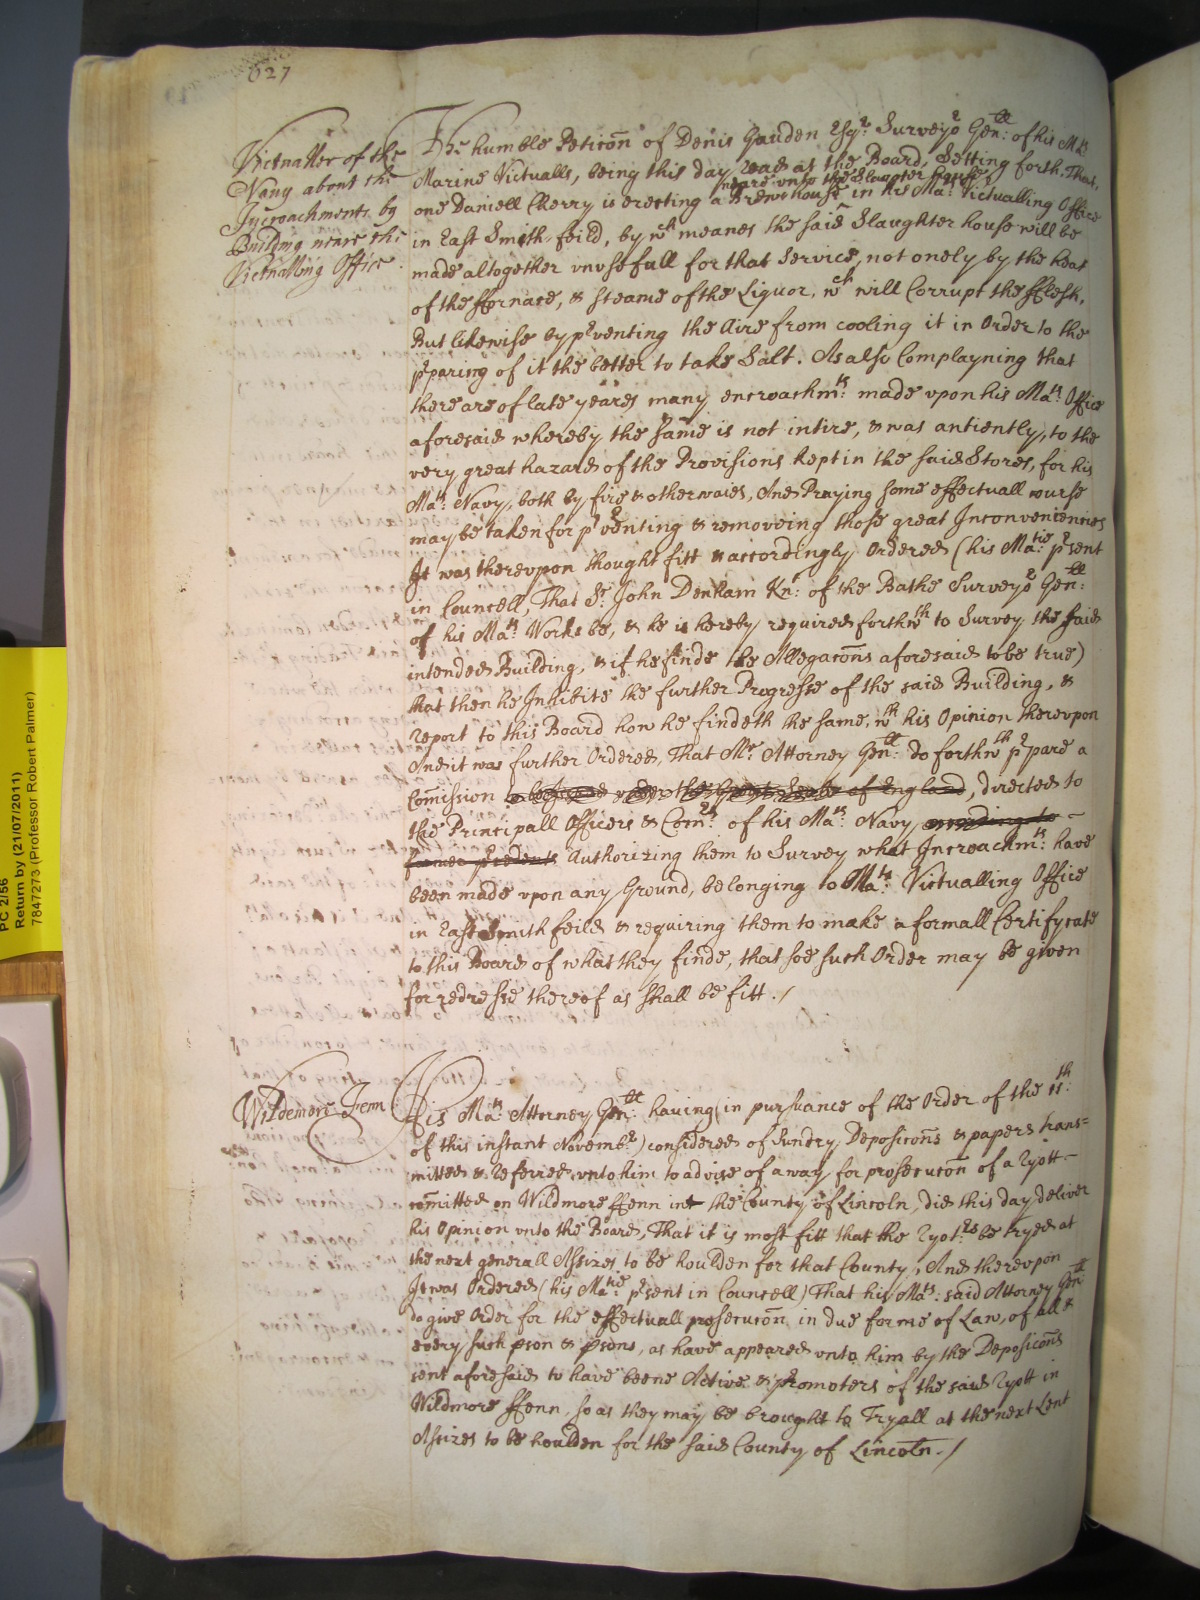 627
Victualler of the
Navy about the
Incroachments by
Building neare the
Victualling Office.
The humble Peticōn of Denis Gauden Esqr. Surveyor Genll: of his Mats
Marine Victualls, being this day read at the Board, Setting forth, That,
neare unto the Slaughter house
one Daniell Cherry is erecting a Brewhouse in his Mats: Victualling Office
in East Smith-feild, by wch meanes the said Slaughter house will be
made altogether vnusefull for that Service, not onely by the heat
of the ffornace, & steame of the Liquor, wch will Corrupt the fflesh,
But likewise by pr venting the Aire from cooling it in Order to the
pr paring of it the better to take Salt. As also Complayning that
there are of late yeares many encroachmts: made vpon his Mats: Office
aforesaid whereby the same is not intire, & was antiently, to the
very great hazard of the Provisions kept in the said Stores, for his
Mats: Navy, both by fire & otherwaies, And Praying some effectuall course
may be taken for pr venting & removeing those great Inconveniencies
It was therevpon thought fitt & accordingly Ordered (his Matie: pr sent
in Councell, That Sr. John Denham Knt: of the Bathe Surveyor Genll:
of his Mats: Works be, & he is hereby required forthwth to Survey the said
intended Building, & if he finde the Allegacōns aforesaid to be true)
that then he Inhibite the further Progresse of the said Building, &
report to this Board how he findeth the same, wth his Opinion therevpon
And it was further Ordered, That Mr. Attorney Genll: do forthwth pr pare a
Comission to be passed vnder the Great Seale of England, directed to
the Principall Officers & Comrs. of his Mats: Navy, according to -
former presidents Authorizing them to Survey what Incroachmts: have
been made vpon any Ground, belonging to Mats: Victualling Office
in East Smithfeild & requiring them to make a formall Certifycate
to this Board of what they finde, that soe such Order may be given
for redresse thereof as shall be fitt. /
Wildemore Fenn
His Mats: Attorney Genll: having (in pursuance of the Order of the 11th:
of this instant Novembr.) considered of sundry Deposicōns & papers trans=
mitted & referred vnto him to advise of a way for prosecucōn of a Ryott -
comitted on Wildmore ffenn in the County of Lincoln, did this day deliver
his Opinion vnto the Board, That it is most fitt that the Ryotrs be tryed at
the next generall Assizes to be houlden for that County, And therevpon
It was Ordered (his Matie: pr sent in Councell) That his Mats: said Attorney Genll:
do give Order for the effectuall prosecucōn in due forme of Law, of all &
every such pson & psons, as have appeared vnto him by the Deposicōns
sent aforesaid to have beene Active & promoters of the said Ryott in
Wildmore ffenn, so as they may be brought to Tryall at the next Lent
Assizes to be houlden for the said County of Lincoln. /
PC 2/56
Return by (21/07/2011)
7847273 (Professor Robert Palmer)